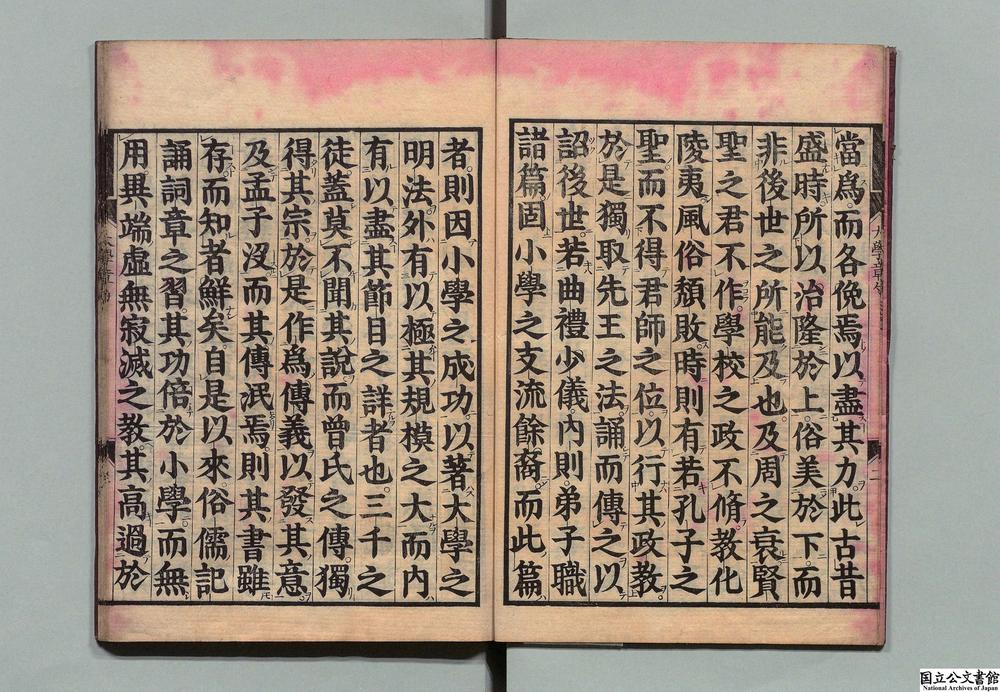 當爲而各俛焉以盡其力此古昔
盛時所以治隆於上俗美於下而
非後世之所能及也及周之衰賢
聖之君不作學校之政不脩教化
陵夷風俗頽敗時則有若孔子之
聖而不得君師之位以行其政教
於是獨取先王之法誦而傳之以
詔後世若曲禮少儀内則弟子職
諸篇固小學之支流餘裔而此篇
者則因小學之成功以著大學之
明法外有以極其規模之大而内
有以盡其節目之詳者也三千之
徒蓋莫不聞其説而曾氏之傳獨
得其宗於是作爲傳義以發其意
及孟子沒而其傳泯焉則其書雖
存而知者鮮矣自是以來俗儒記
誦詞章之習其功倍於小學而無
用異端虚無寂滅之教其高過於
国立公文書館
National Archives of Japan